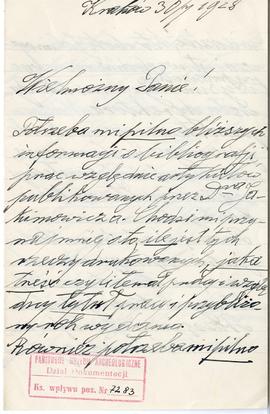 Kraków 30/V 1928
Wielmożny Panie!
Potrzeba mi pilno bliższych
informacji o bibliografji
prac względnie artykułów
publikowanych przez Dra Ja-
kimowicza. Chodzi mi przy-
najmniej o to, ile jest tych
rzeczy drukowanych, jaka
treść czy literat. pudry i wzglę-
dny tytuł prac i przybliżo-
ny rok wydania.
Również potrzeba mi pilno
PAŃSTWOWE MUZEUM ARCHEOLOGICZNE
Dział Dokumentacji
Ks. wpływu poz. Nr 7283